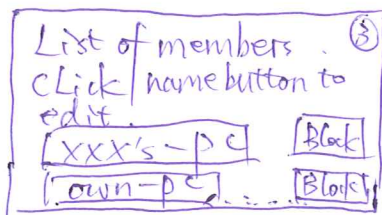 List of members. ③
click name button to
edit.
xxx's-pc Block
own-pc Block